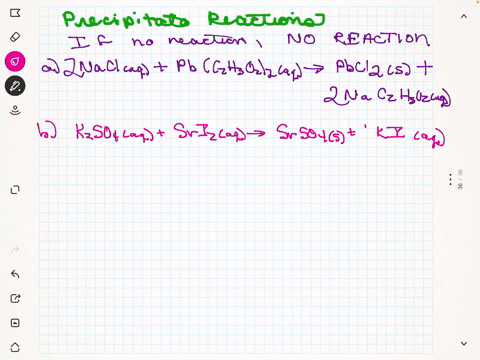 Precipitate Reactions
If no reaction, NO REACTION
a) 2NaCl(aq) + Pb(C2H3O2)2(aq) → PbCl2(s) +
2NaC2H3O2(aq)
b) K2SO4(aq) + SrI2(aq) → SrSO4(s) + KI (aq)
36 / 36